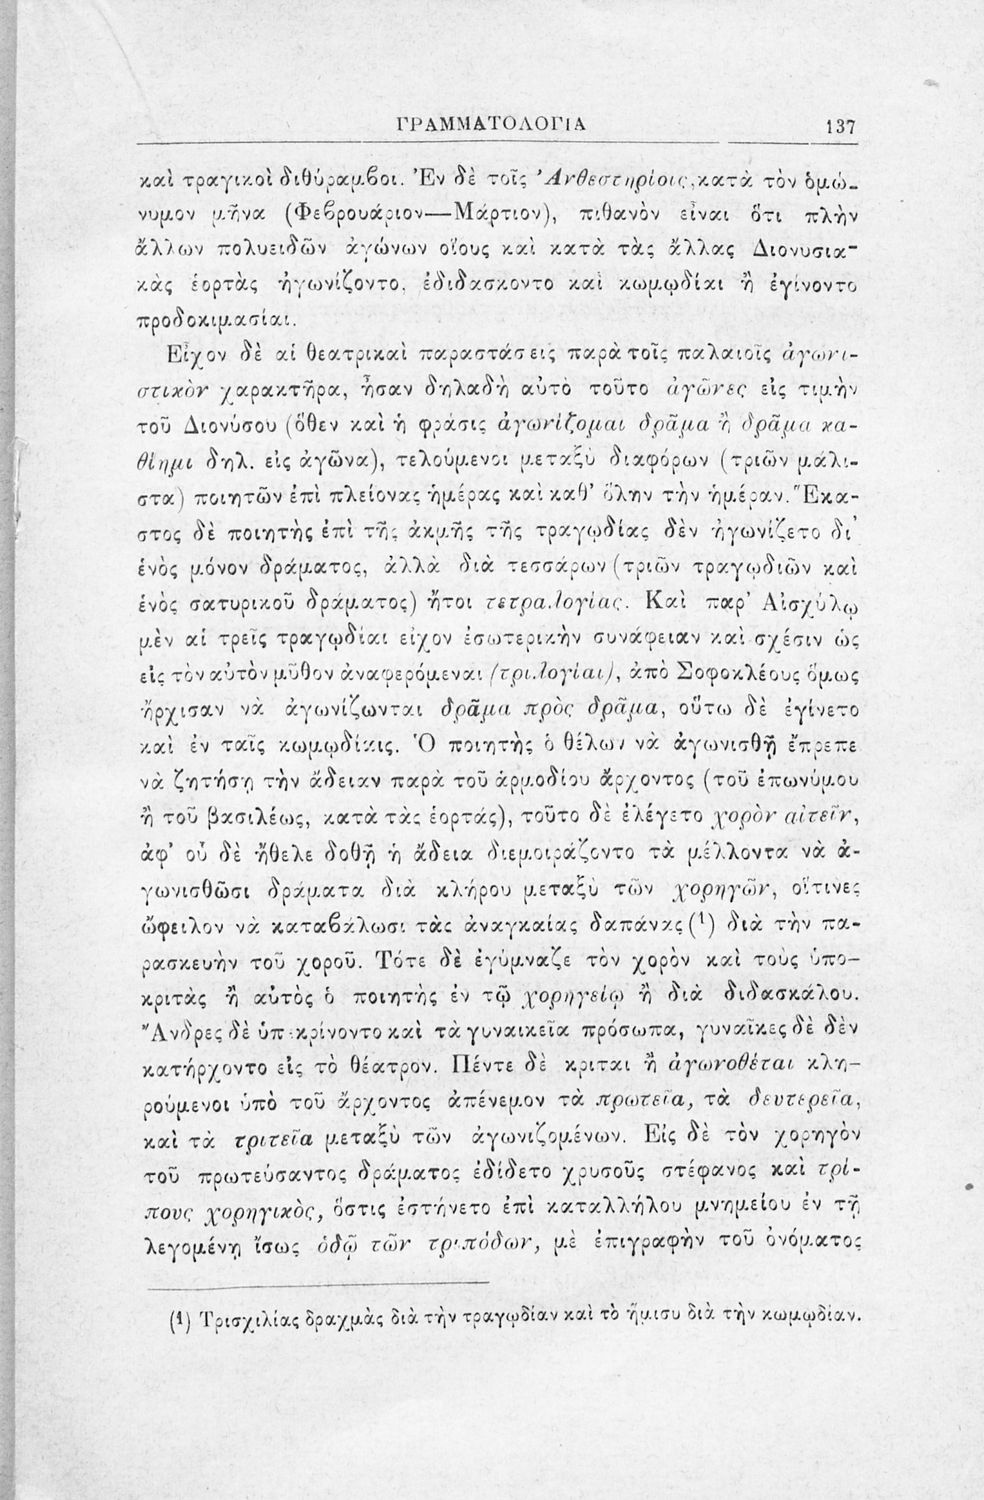 ΓΡΑΜΜΑΤΟΛΟΓΙΑ 137
καὶ τραγικοὶ διθύραμβοι. Ἐν δὲ τοῖς Ἀνθεστηρίοις, κατὰ τὸν ὁμώ-
νυμον μῆνα (Φεβρουάριον—Μάρτιον), πιθανὸν εἶναι ὅτι πλὴν
ἄλλων πολυειδῶν ἀγώνων οἵους καὶ κατὰ τὰς ἄλλας Διονυσια-
κὰς ἑορτὰς ἠγωνίζοντο, ἐδιδάσκοντο καὶ κωμῳδίαι ἢ ἐγίνοντο
προδοκιμασίαι.
Εἶχον δὲ αἱ θεατρικαὶ παραστάσεις παρὰ τοῖς παλαιοῖς ἀγωνι-
στικὸν χαρακτῆρα, ἦσαν δηλαδὴ αὐτὸ τοῦτο ἀγῶνες εἰς τιμὴν
τοῦ Διονύσου (ὅθεν καὶ ἡ φράσις ἀγωνίζομαι δρᾶμα ἢ δρᾶμα κα-
θίημι δηλ. εἰς ἀγῶνα), τελούμενοι μεταξὺ διαφόρων (τριῶν μάλι-
στα) ποιητῶν ἐπὶ πλείονας ἡμέρας καὶ καθ' ὅλην τὴν ἡμέραν. Ἕκα-
στος δὲ ποιητὴς ἐπὶ τῆς ἀκμῆς τῆς τραγῳδίας δὲν ἠγωνίζετο δι'
ἑνὸς μόνον δράματος, ἀλλὰ διὰ τεσσάρων (τριῶν τραγῳδιῶν καὶ
ἑνὸς σατυρικοῦ δράματος) ἤτοι τετραλογίας. Καὶ παρ' Αἰσχύλῳ
μὲν αἱ τρεῖς τραγῳδίαι εἶχον ἐσωτερικὴν συνάφειαν καὶ σχέσιν ὡς
εἰς τὸν αὐτὸν μῦθον ἀναφερόμεναι (τριλογίαι), ἀπὸ Σοφοκλέους ὅμως
ἤρχισαν νὰ ἀγωνίζωνται δρᾶμα πρὸς δρᾶμα, οὕτω δὲ ἐγίνετο
καὶ ἐν ταῖς κωμῳδίαις. Ὁ ποιητὴς ὁ θέλων νὰ ἀγωνισθῇ ἔπρεπε
νὰ ζητήσῃ τὴν ἄδειαν παρὰ τοῦ ἁρμοδίου ἄρχοντος (τοῦ ἐπωνύμου
ἢ τοῦ βασιλέως, κατὰ τὰς ἑορτάς), τοῦτο δὲ ἐλέγετο χορὸν αἰτεῖν,
ἀφ' οὗ δὲ ἤθελε δοθῇ ἡ ἄδεια διεμοιράζοντο τὰ μέλλοντα νὰ ἀ-
γωνισθῶσι δράματα διὰ κλήρου μεταξὺ τῶν χορηγῶν, οἵτινες
ὤφειλον νὰ καταβάλωσι τὰς ἀναγκαίας δαπάνας (1) διὰ τὴν πα-
ρασκευὴν τοῦ χοροῦ. Τότε δὲ ἐγύμναζε τὸν χορὸν καὶ τοὺς ὑπο-
κριτὰς ἢ αὐτὸς ὁ ποιητὴς ἐν τῷ χορηγείῳ ἢ διὰ διδασκάλου.
Ἄνδρες δὲ ὑπεκρίνοντο καὶ τὰ γυναικεῖα πρόσωπα, γυναῖκες δὲ δὲν
κατήρχοντο εἰς τὸ θέατρον. Πέντε δὲ κριταὶ ἢ ἀγωνοθέται κλη-
ρούμενοι ὑπὸ τοῦ ἄρχοντος ἀπένεμον τὰ πρωτεῖα, τὰ δευτερεῖα,
καὶ τὰ τριτεῖα μεταξὺ τῶν ἀγωνιζομένων. Εἰς δὲ τὸν χορηγὸν
τοῦ πρωτεύσαντος δράματος ἐδίδετο χρυσοῦς στέφανος καὶ τρί-
πους χορηγικὸς, ὅστις ἐστήνετο ἐπὶ καταλλήλου μνημείου ἐν τῇ
λεγομένῃ ἴσως ὁδῷ τῶν τριπόδων, μὲ ἐπιγραφὴν τοῦ ὀνόματος
(1) Τρισχιλίας δραχμὰς διὰ τὴν τραγῳδίαν καὶ τὸ ἥμισυ διὰ τὴν κωμῳδίαν.